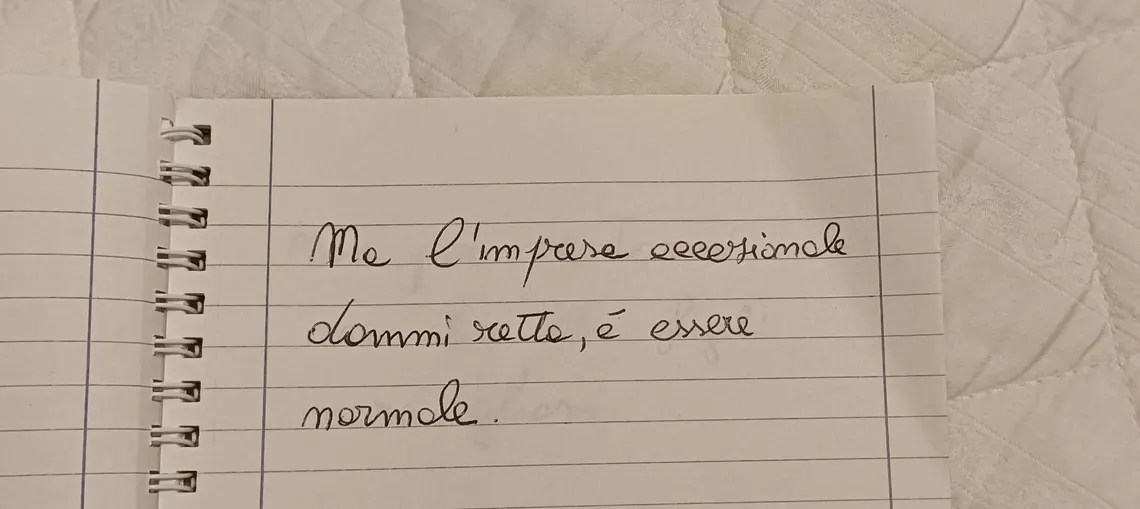 Ma l'impresa eccezionale
dammi retta, é essere
normale.